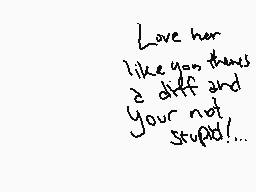 Love her
like you theres
a diff and
your not
stupid!...